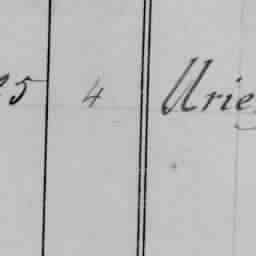 5 4 Urie